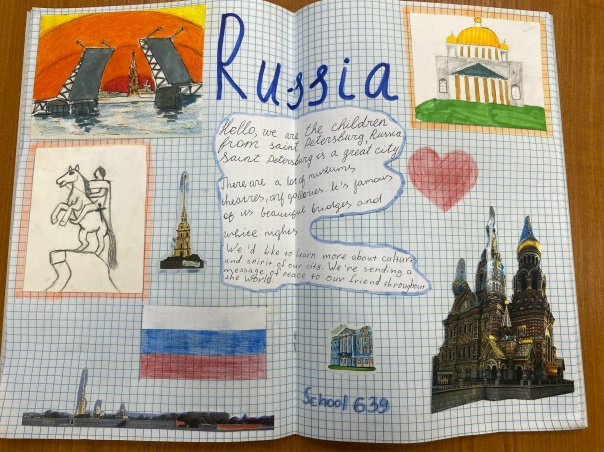 Russia
Hello, we are the children
from saint Petersburg, Russia
Saint Petersburg is a great city
There are a lot of museums,
theatres, art galleries. It's famous
of its beautiful bridges and
white nights
We'd like to learn more about culture
and spirit of our city. We're sending a
message of peace to our friend throughout
the world.
School 639